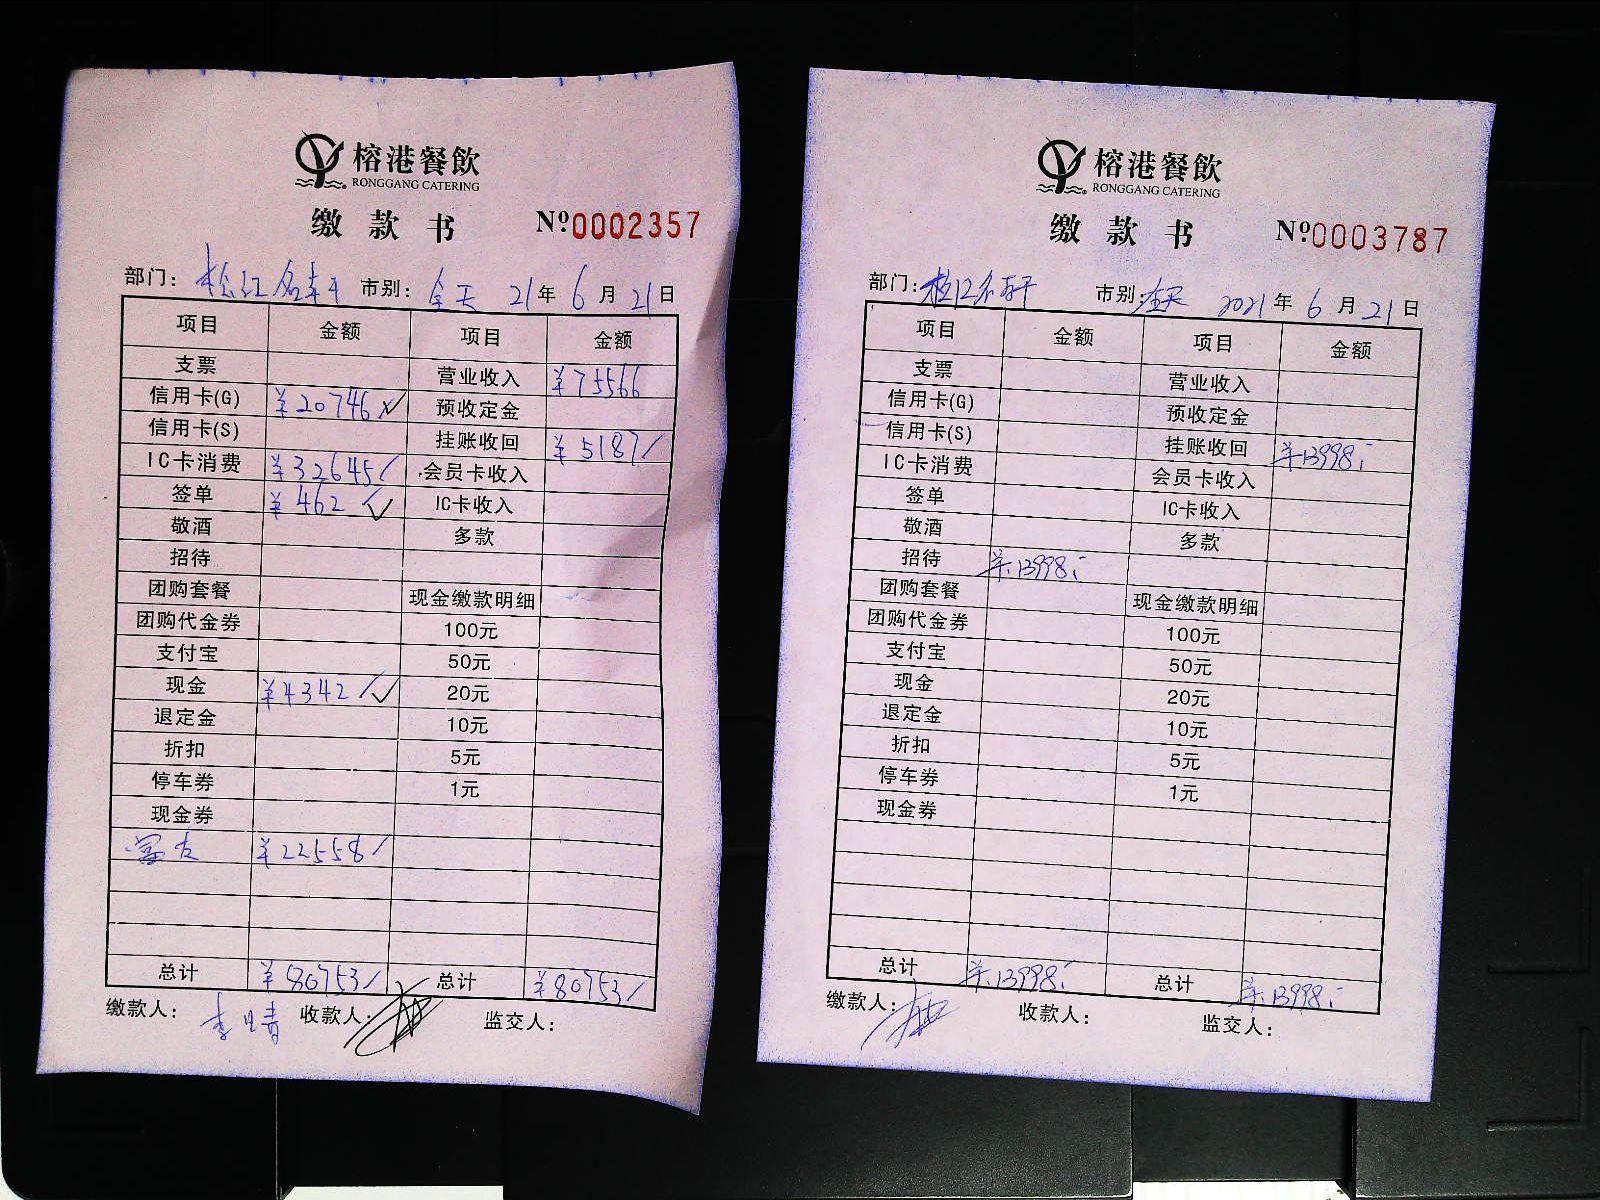 榕港餐飲
RONGGANG CATERING
缴款书 №.0002357
部门: 松江名轩 市别: 全天 21年 6月 21日
项目 金额 项目 金额
支票 营业收入 ¥75566
信用卡(G) ¥20746 预收定金
信用卡(S) 挂账收回 ¥5187
IC卡消费 ¥32645 会员卡收入
签单 ¥462 IC卡收入
敬酒 多款
招待
团购套餐 现金缴款明细
团购代金券 100元
支付宝 50元
现金 ¥4342 20元
退定金 10元
折扣 5元
停车券 1元
现金券
¥22558
总计 ¥80753 总计 ¥80753
缴款人: 收款人: 监交人:
榕港餐飲
RONGGANG CATERING
缴款书 №.0003787
部门: 松江名轩 市别: 全天 2021年 6月 21日
项目 金额 项目 金额
支票 营业收入
信用卡(G) 预收定金
信用卡(S) 挂账收回 ¥13998
IC卡消费 会员卡收入
签单 IC卡收入
敬酒 多款
招待 ¥13998
团购套餐 现金缴款明细
团购代金券 100元
支付宝 50元
现金 20元
退定金 10元
折扣 5元
停车券 1元
现金券
总计 ¥13998 总计 ¥13998
缴款人: 收款人: 监交人: